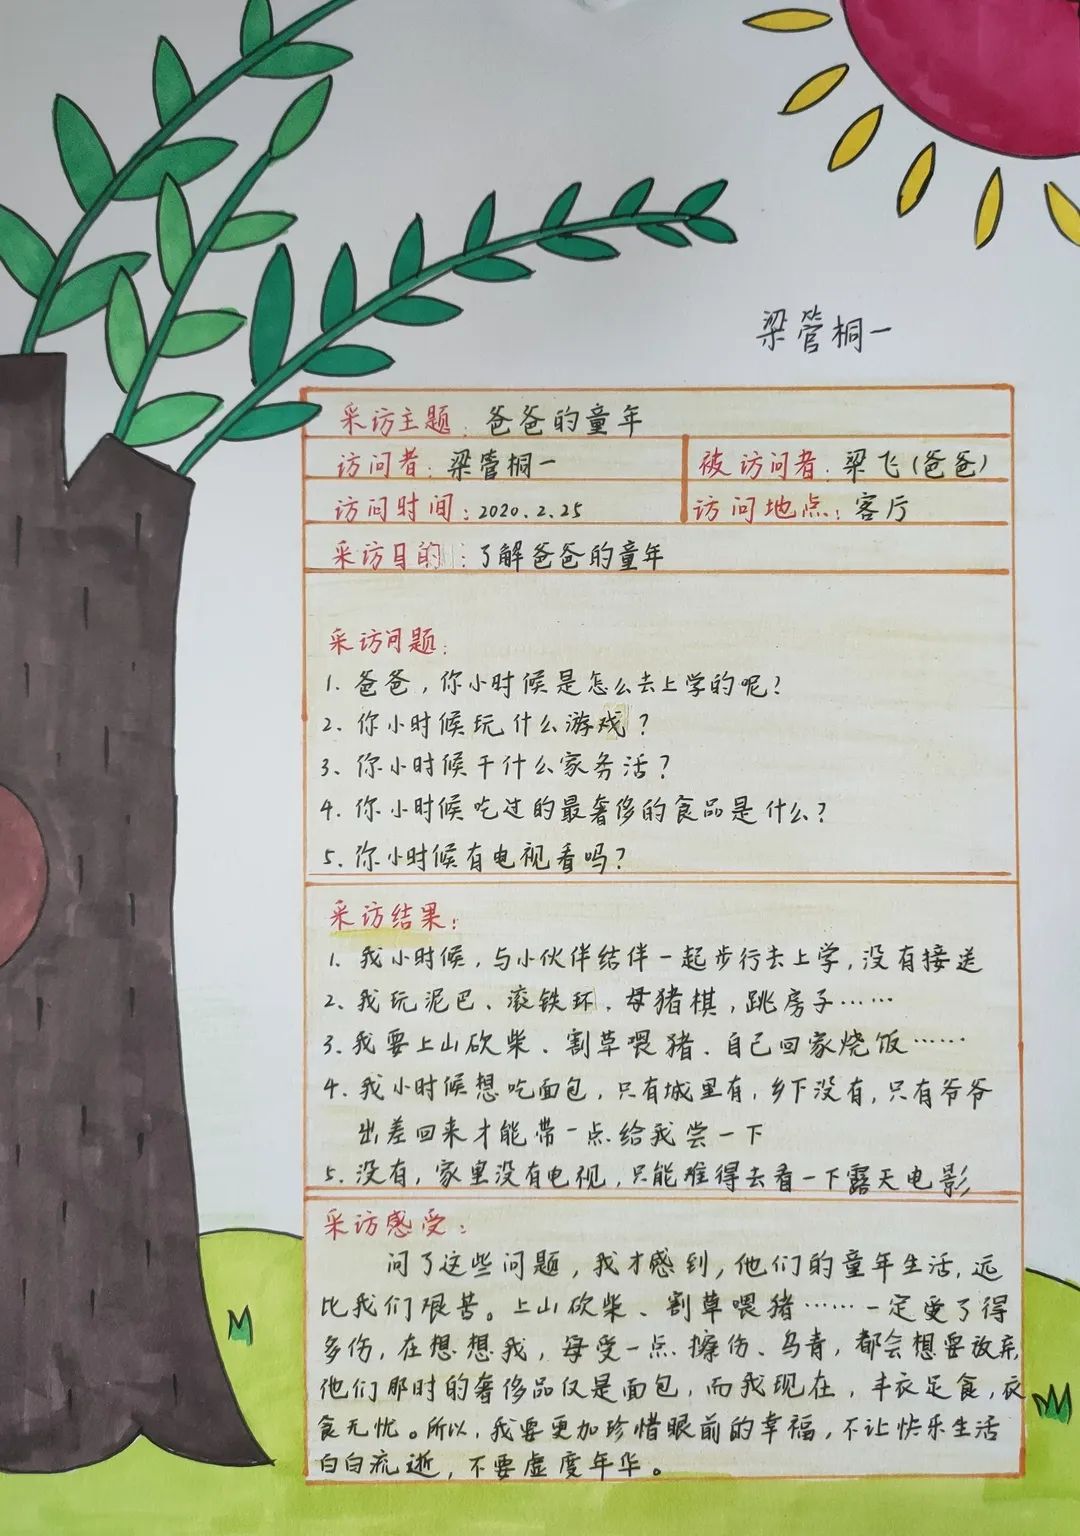 梁管桐一
采访主题：爸爸的童年
访问者：梁管桐一 被访问者：梁飞(爸爸)
访问时间：2020.2.25 访问地点：客厅
采访目的：了解爸爸的童年
采访问题：
1. 爸爸，你小时候是怎么去上学的呢？
2. 你小时候玩什么游戏？
3、你小时候干什么家务活？
4. 你小时候吃过的最奢侈的食品是什么？
5. 你小时候有电视看吗？
采访结果：
1. 我小时候，与小伙伴结伴一起步行去上学，没有接送
2. 我玩泥巴、滚铁环、母猪棋，跳房子……
3. 我要上山砍柴、割草喂猪、自己回家烧饭……
4. 我小时候想吃面包，只有城里有，乡下没有，只有爷爷
出差回来才能带一点给我尝一下
5. 没有，家里没有电视，只能难得去看一下露天电影
采访感受：
问了这些问题，我才感到，他们的童年生活，远
比我们艰苦。上山砍柴、割草喂猪……一定受了得
多伤，在想想我，每受一点擦伤、乌青，都会想要放弃
他们那时的奢侈品仅是面包，而我现在，丰衣足食，衣
食无忧。所以，我要更加珍惜眼前的幸福，不让快乐生活
白白流逝，不要虚度年华。